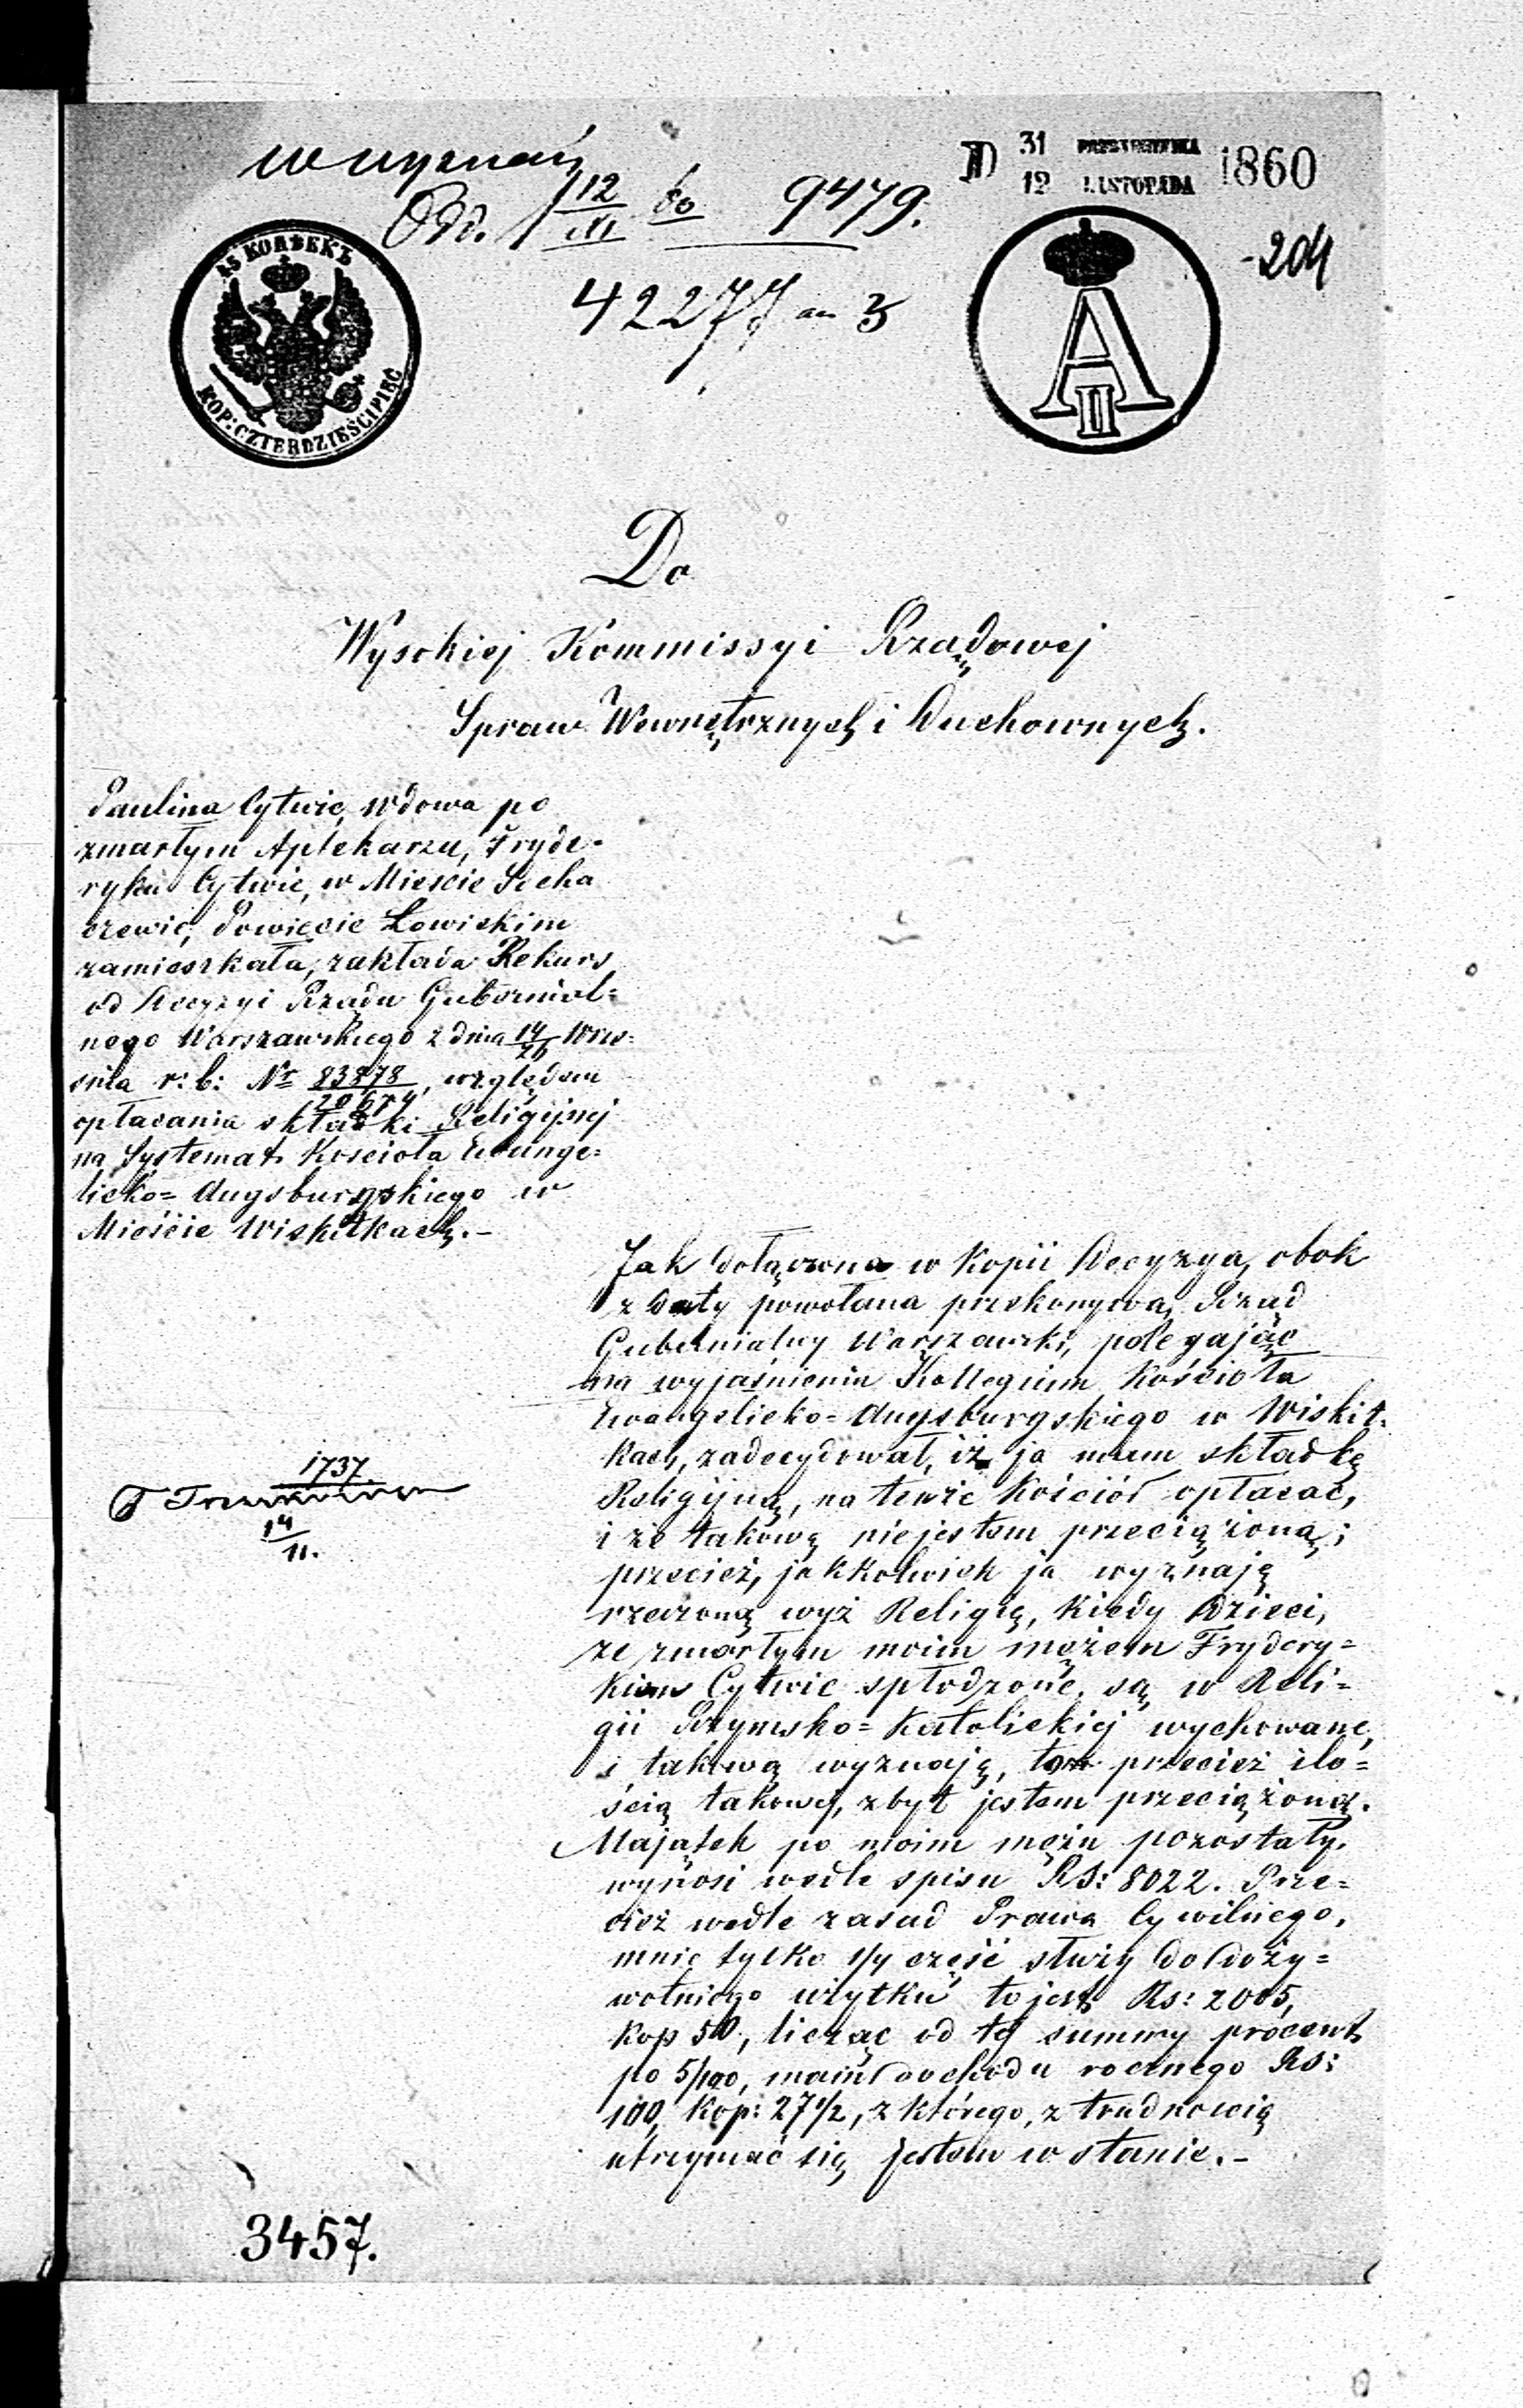 W wyznań
D 31 PAŹDZIERNIKA 1860
12 LISTOPADA
Odd. 12/XI 60 9479.
204
42277 3
45 КОПѢЕКЪ
KOP: CZTERDZIEŚCI PIĘĆ
A II
Do
Wysokiej Kommissyi Rządowej
Spraw Wewnętrznych i Duchownych.
Paulina Cytwic, wdowa po
zmarłym Aptekarzu, Fryde-
ryku Cytwic, w Mieście Socha
czewie, Powiecie Łowickim
zamieszkała, zakłada Rekurs
od Decyzyi Rządu Gubernial=
nego Warszawskiego z dnia 14/26 Wrze=
śnia r: b: Nr 83878/20674, względem
opłacania składki Religijnej
na Systemat Kościoła Ewange=
licko= Augsburgskiego w
Mieście Wiskitkach.-
Jak dołączona w Kopii Decyzya, obok
z daty powołana przekonywa, Rząd
Gubernialny Warszawski, polegając
na wyjaśnieniu Kollegium Kościoła
Ewangelicko= Augsburgskiego w Wiskit=
kach, zadecydował, iż ja mam składkę
Religijną, na tenże Kościół opłacać,
i że takową niejestem przeciążoną;
przecież, jakkolwiek ja wyznaję
rzeczoną wyż Religię, Kiedy Dzieci,
ze zmarłym moim mężem Frydery=
kiem Cytwic spłodzone, są w Reli=
gii Rzymsko= Katolickiej wychowane,
i takową wyznają, przecież ilo=
ścią takowej, zbyt jestem przeciążoną.
Majątek po moim mężu pozostały,
wynosi wedle spisu RS: 8022. Prze=
cież wedle zasad Prawa Cywilnego,
mnie tylko 1/4 część służy do doży=
wotniego użytku to jest Rs: 2005,
kop 50, licząc od tej summy procent
po 5/100, mam dochodu rocznego RS:
100, kop: 27 1/2, z którego, z trudnością
utrzymać się jestem w stanie.-
1737.
14/11.
3457.